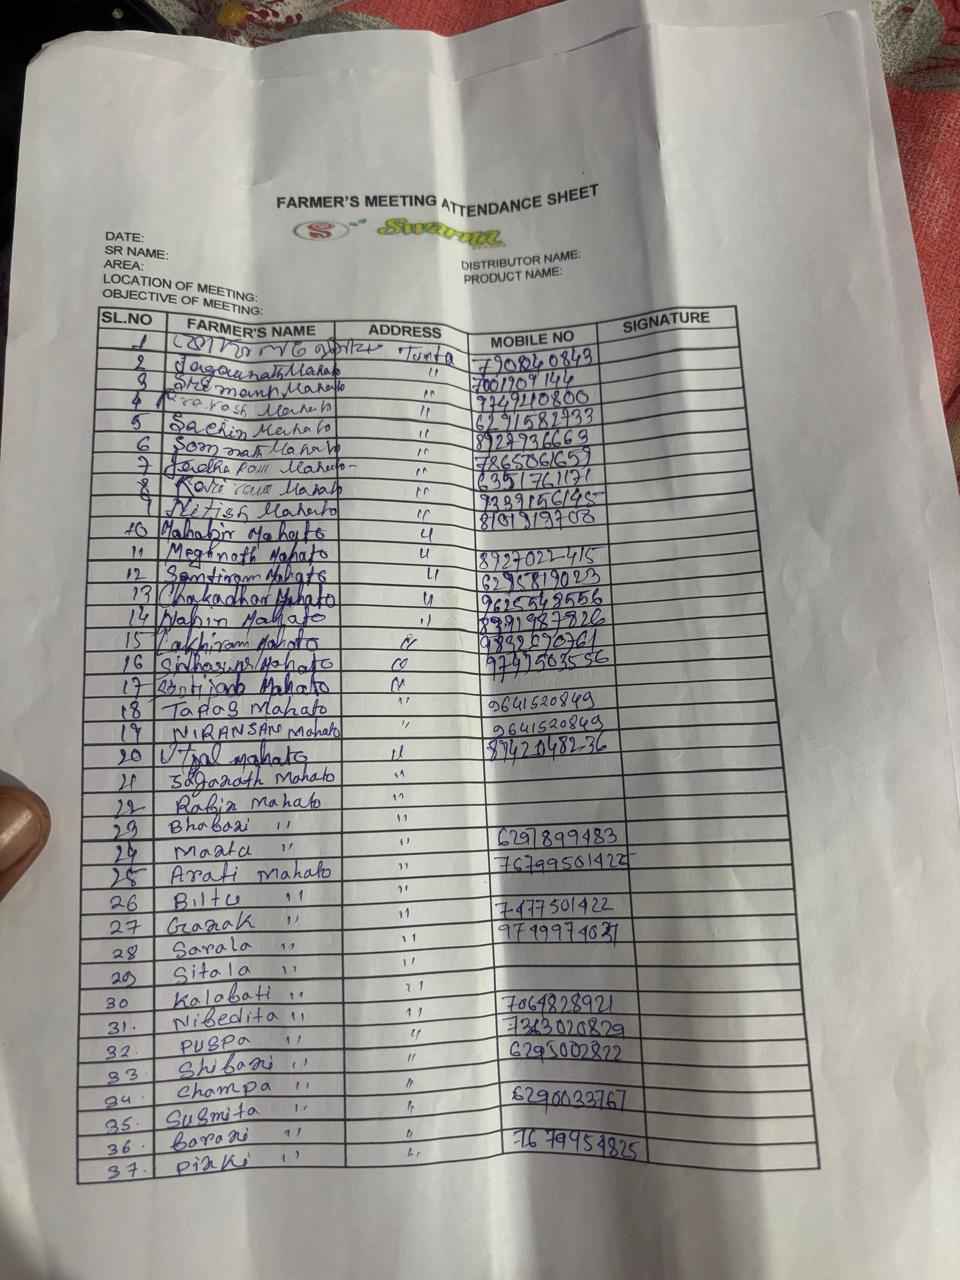 FARMER'S MEETING ATTENDANCE SHEET
S Swarna
DATE:
SR NAME:
AREA:
LOCATION OF MEETING:
OBJECTIVE OF MEETING:
DISTRIBUTOR NAME:
PRODUCT NAME:
SL.NO FARMER'S NAME ADDRESS MOBILE NO SIGNATURE
1 Tunta
2 Jagannath Mahato " 7001709144
3 Mahato " 9749210800
4 Mahato " 6291582733
5 Sachin Mahato " 8927936663
6 Mahato " 7865061659
7 Mahato " 6351761171
8 Mahato " 9339156145
9 Nitish Mahato " 8101919708
10 Mahabir Mahato "
11 Meghnath Mahato " 8927022415
12 Santiram Mahato " 6295819023
13 Chakadhar Mahato " 9625549556
14 Nabin Mahato "
15 Lakhiram Mahato "
16 Mahato "
17 Mahato "
18 Tapas Mahato " 9641520849
19 NIRANSAN Mahato " 9641520849
20 Utpal mahato " 8942048236
21 Saganath Mahato "
22 Rabin Mahato "
23 Bhabani " "
24 Manta " " 6297899483
25 Arati Mahato " 76799501422
26 Biltu " "
27 Ganak " " 7477501422
28 Sarala " "
29 Sitala " "
30 Kalabati " "
31. Nibedita " " 7064828921
32. PUSPA " " 7363020829
33 Shibani " " 6295002822
34. Champa " "
35. Susmita " " 6290033767
36. "
37. Pinki " " 7679954825